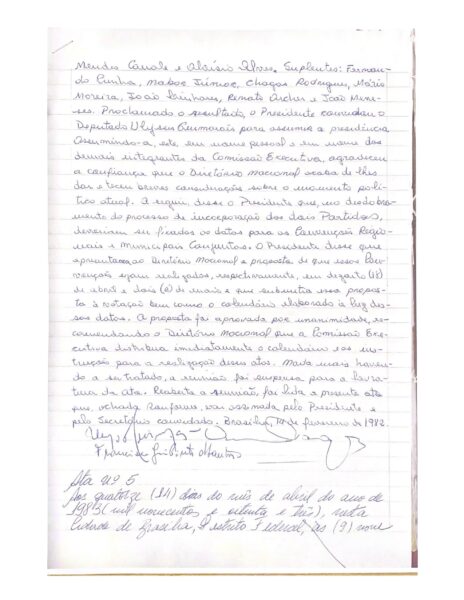 Mendes Canale e Aloísio Alves. Suplentes: Fernan-
do Cunha, Mabor Júnior, Chagas Rodrigues, Mário
Moreira, João Linhares, Renato Archer e João Mene-
ses. Proclamado o resultado, o Presidente convidou o
Deputado Ulysses Guimarães para assumir a presidência
Assumindo-a, este, em nome pessoal e em nome dos
demais integrantes da Comissão Executiva, agradeceu
a confiança que o Diretório nacional acaba de lhes
dar e teceu breves considerações sobre o momento polí-
tico atual. A seguir, disse o Presidente que, no desdobra-
mento do processo de incorporação dos dois Partidos,
deveriam ser fixadas as datas para as Convenções Regio-
nais e Municipais Conjuntas. O Presidente disse que
apresentava ao Diretório Nacional a proposta de que essas Con-
venções sejam realizadas, respectivamente, em dezoito (18)
de abril e dois (2) de maio e que submetia essa propos-
ta à votação bem como o calendário elaborado à luz des-
sas datas. A proposta foi aprovada por unanimidade, re-
comendando o Diretório Nacional que a Comissão Exe-
cutiva distribua imediatamente o calendário e as ins-
truções para a realização desses atos. Nada mais haven-
do a ser tratado, a reunião foi suspensa para a lavra-
tura da ata. Reaberta a reunião, foi lida a presente ata
que, achada conforme, vai assinada pelo Presidente e
pelo Secretário convidado. Brasília, de fevereiro de 1982.
Ata nº 5
Aos quatorze (14) dias do mês de abril do ano de
1983 (mil novecentos e oitenta e três), nesta
cidade de Brasília, Distrito Federal, às (9) nove